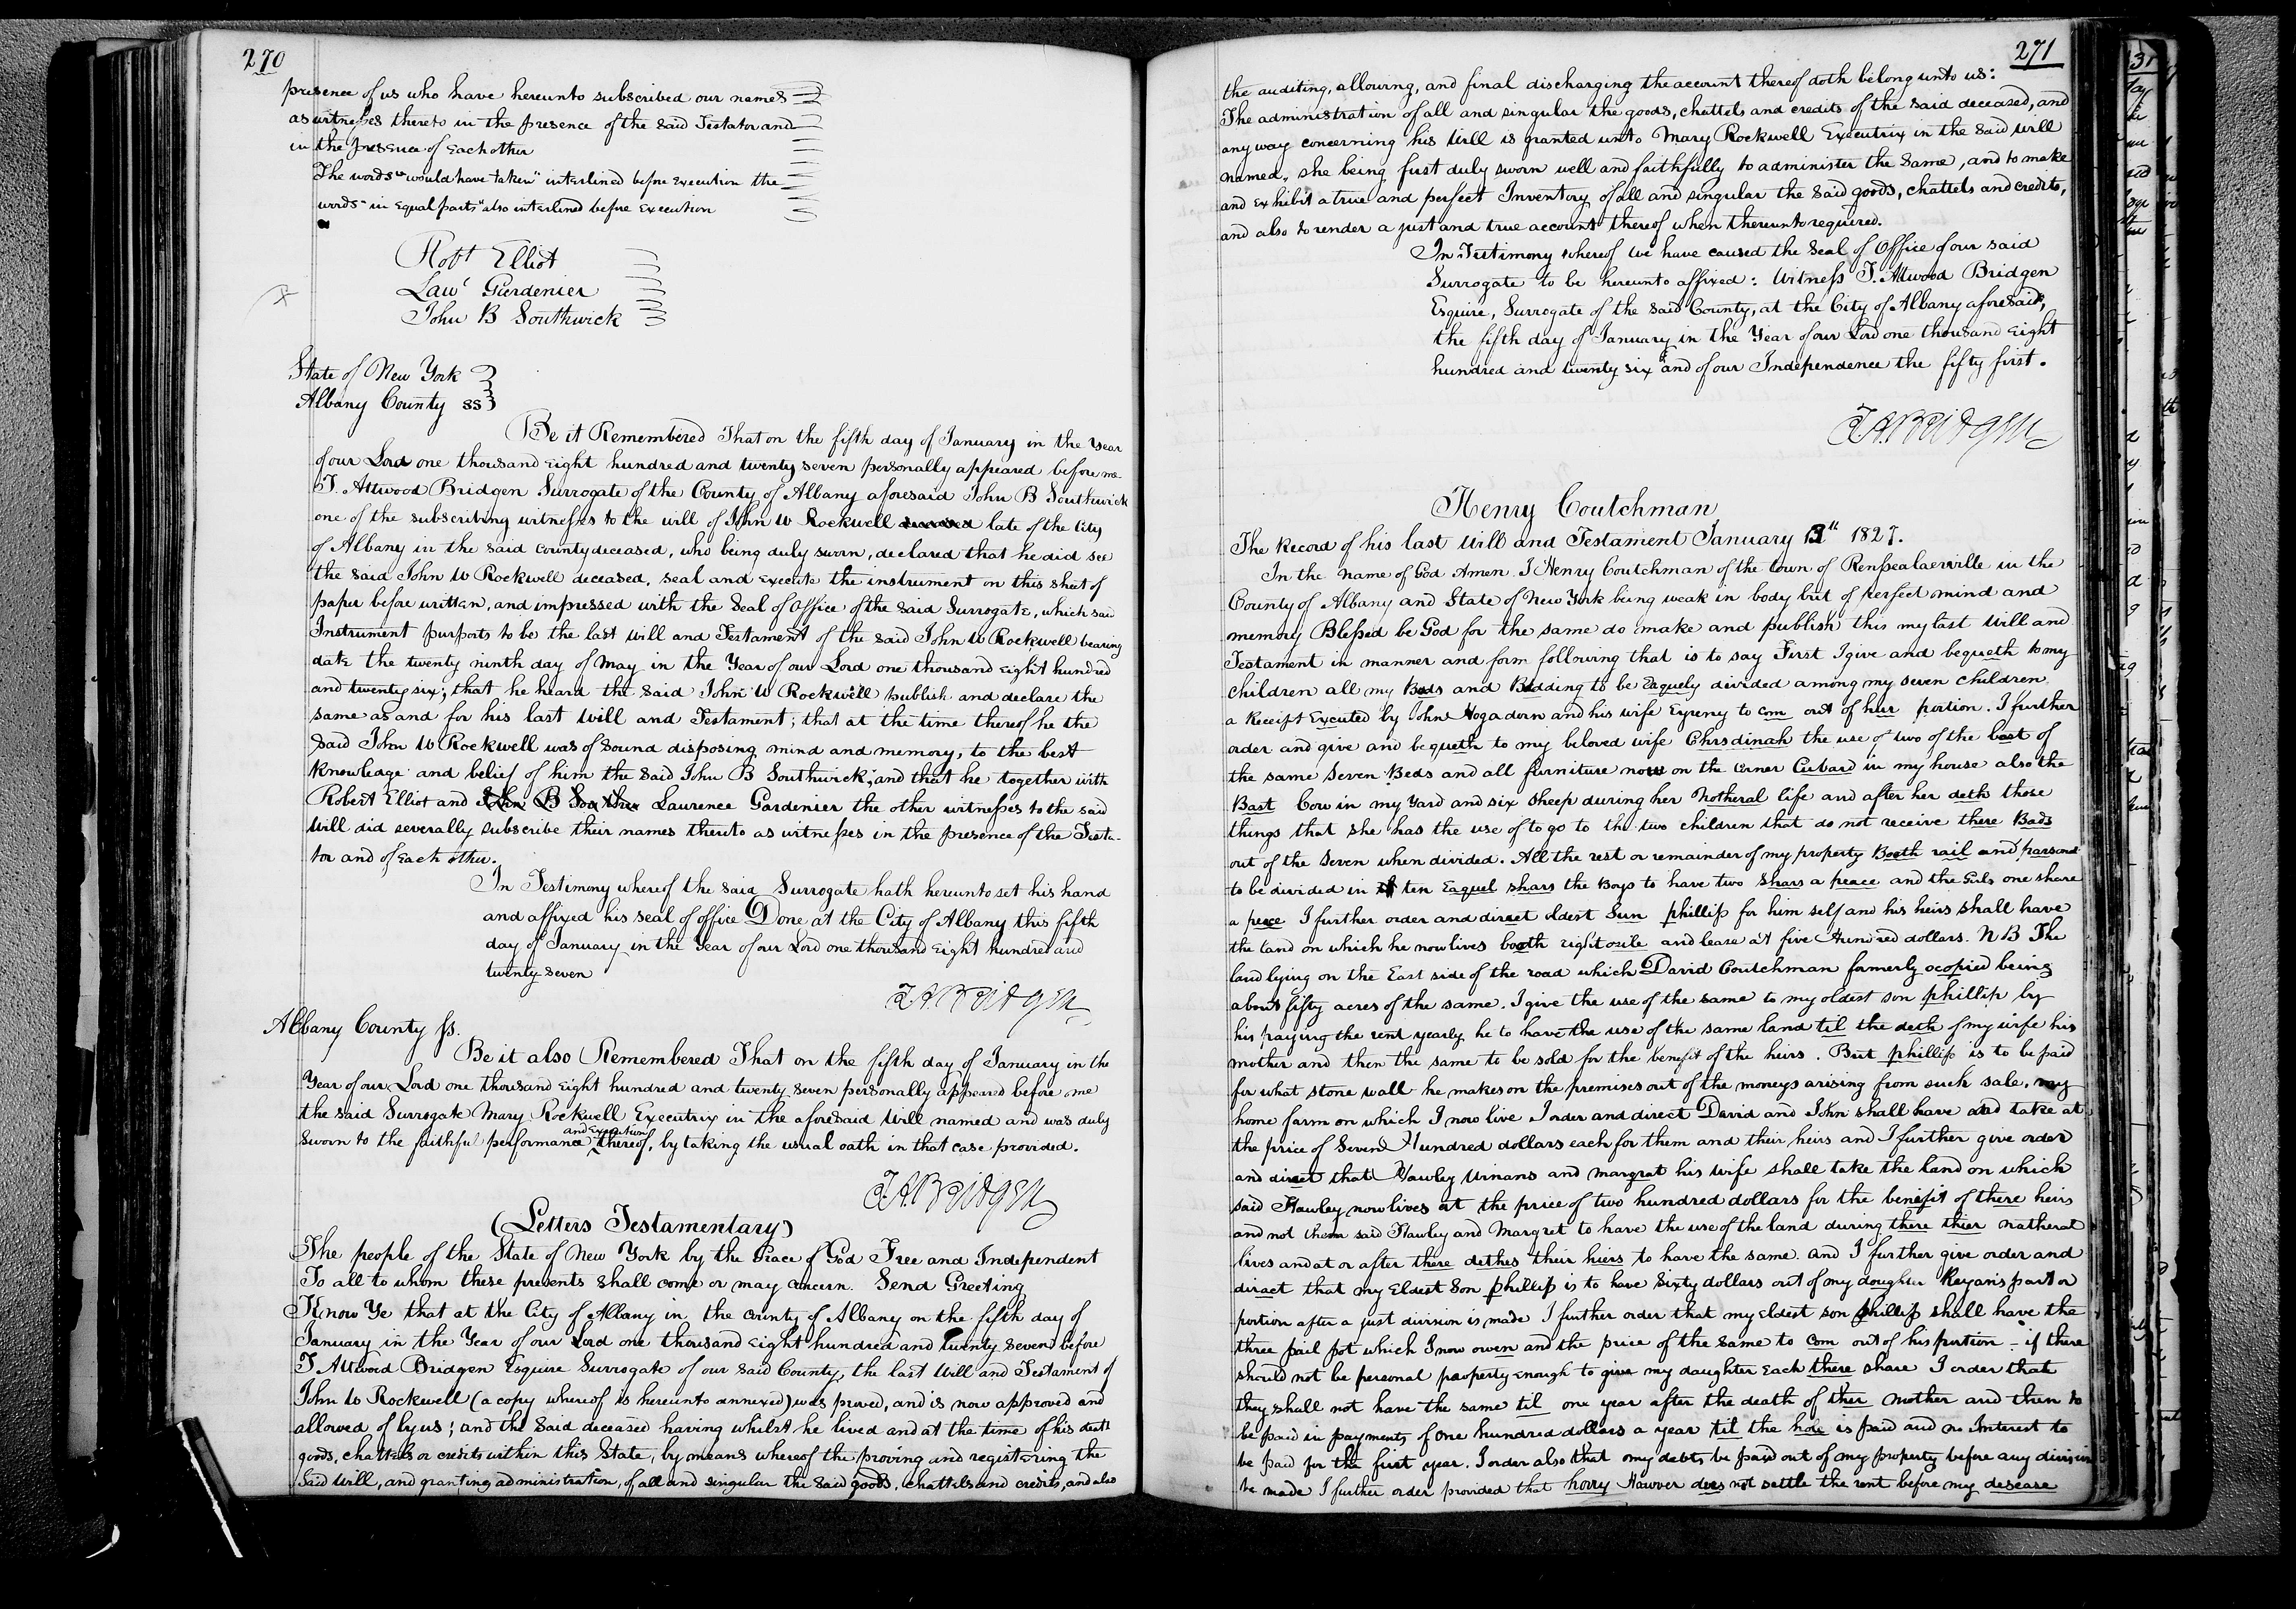 270
presence of us who have hereunto subscribed our names
as witnesses thereto in the presence of the said Testator and
in the presence of Each other
The words "would have taken" interlined before Execution the
words "in Equal parts" also interlined before Execution
Robt Elliot
Lawe Gardenier
John B Southwick
State of New York
Albany County ss
Be it Remembered That on the fifth day of January in the Year
of our Lord one thousand Eight hundred and twenty seven personally appeared before me
T. Attwood Bridgen Surrogate of the County of Albany aforesaid John B Southwick
one of the subscribing witnesses to the will of John W Rockwell late of the City
of Albany in the said county deceased, who being duly sworn, declared that he did see
the said John W Rockwell deceased, seal and Execute the instrument on this sheet of
paper before written, and impressed with the Seal of Office of the said Surrogate, which said
Instrument purports to be the last will and Testament of the said John W Rockwell bearing
date the twenty ninth day of May in the Year of our Lord one thousand Eight hundred
and twenty six; that he heard the said John W Rockwell publish and declare the
same as and for his last will and Testament; that at the time thereof he the
said John W Rockwell was of sound disposing mind and memory, to the best
knowledge and belief of him the said John B Southwick; and that he together with
Robert Elliot and Laurence Gardenier the other witnesses to the said
Will did severally subscribe their names thereto as witnesses in the presence of the Testa-
tor and of Each other.
In Testimony whereof the said Surrogate hath hereunto set his hand
and affixed his seal of office Done at the City of Albany this fifth
day of January in the Year of our Lord one thousand Eight hundred and
twenty seven
T.A. Bridgen
Albany County ss.
Be it also Remembered That on the fifth day of January in the
Year of our Lord one thousand Eight hundred and twenty seven personally appeared before me
the said Surrogate Mary Rockwell Executrix in the aforesaid Will named and was duly
sworn to the faithful performance and Execution thereof, by taking the usual oath in that case provided.
T.A. Bridgen
(Letters Testamentary)
The people of the State of New York by the Grace of God Free and Independent
To all to whom these presents shall come or may concern Send Greeting
Know Ye that at the City of Albany in the County of Albany on the fifth day of
January in the Year of our Lord one thousand Eight hundred and twenty seven before
T. Attwood Bridgen Esquire Surrogate of our said County, the last Will and Testament of
John W Rockwell (a copy whereof is hereunto annexed) was proved, and is now approved and
allowed of by us; and the said deceased having whilst he lived and at the time of his death
goods, chattels or credits within this State, by means whereof the proving and registering the
said Will, and granting administration, of all and singular the said goods, chattels and credits, and also
271
the auditing, allowing, and final discharging the account thereof doth belong unto us:
The administration of all and singular the goods, chattels and credits of the said deceased, and
any way concerning his Will is granted unto Mary Rockwell Executrix in the said will
named, she being first duly sworn well and faithfully to administer the same, and to make
and exhibit a true and perfect Inventory of all and singular the said goods, chattels and credits,
and also to render a just and true account thereof when thereunto required.
In Testimony whereof we have caused the Seal of Office of our said
Surrogate to be hereunto affixed: Witness T. Attwood Bridgen
Esquire, Surrogate of the said County, at the City of Albany aforesaid,
the fifth day of January in the Year of our Lord one thousand Eight
hundred and twenty six and of our Independence the fifty first.
T.A. Bridgen
Henry Coutchman
The Record of his last Will and Testament January 1827.
In the name of God Amen. I Henry Coutchman of the town of Rensealaerville in the
County of Albany and State of New York being weak in body but of perfect mind and
memory Blessed be God for the same do make and publish this my last will and
Testament in manner and form following that is to say First I give and bequeth to my
children all my Beds and Bedding to be Eaquely divided among my seven children
a Receipt Excuted by John Hogadorn and his wife Eyreny to com out of hur portion. I further
order and give and bequeth to my beloved wife Chrsdinah the use of two of the bast of
the same seven Beds and all furniture now on the corner Cubard in my house also the
Bast Cow in my Yard and six sheep during her Notheral life and after her deth those
things that she has the use of to go to the two children that do not receive there Bads
out of the seven when divided. All the rest or remainder of my property Booth rail and parsonal
to be divided in ten Eaquel shars the Boys to have two shars a peace and the Girls one share
a peace I further order and diract oldest Sun phillip for him self and his heirs shall have
the land on which he now lives booth right and lease at five Hundred dollars. N B The
land lying on the East side of the road which David Coutchman formerly ocopied being
about fifty acres of the same. I give the use of the same to my oldest son phillip by
his paying the rent yearly he to have the use of the same land til the deth of my wife his
mother and then the same to be sold for the benefit of the heirs. But phillip is to be paid
for what stone wall he makes on the premises out of the moneys arising from such sale. my
home farm on which I now live I order and direct David and John shall have and take at
the price of Seven Hundred dollars each for them and their heirs and I further give order
and diract that Hawley Winans and margrat his wife shall take the land on which
said Hawley now lives at the price of two hundred dollars for the benifit of there heirs
and not them said Hawley and Margret to have the use of the land during there thier natheral
lives and at or after there dethes their heirs to have the same and I further give order and
diract that my Eldest Son phillip is to have Sixty dollars out of my doughter part or
portion after a just division is made I further order that my Eldest son phillip shall have the
three pail pot which I now owen and the price of the same to com out of his portion - if there
should not be personal property enough to give my daughter Each there share I order that
they shall not have the same til one year after the death of ther mother and then to
be paid in payments of one hundred dollars a year til the hole is paid and no Interest to
be paid for the first year. I order also that my debts be paid out of my property before any division
be made I further order provided that Hawver does not settle the rent before my desease